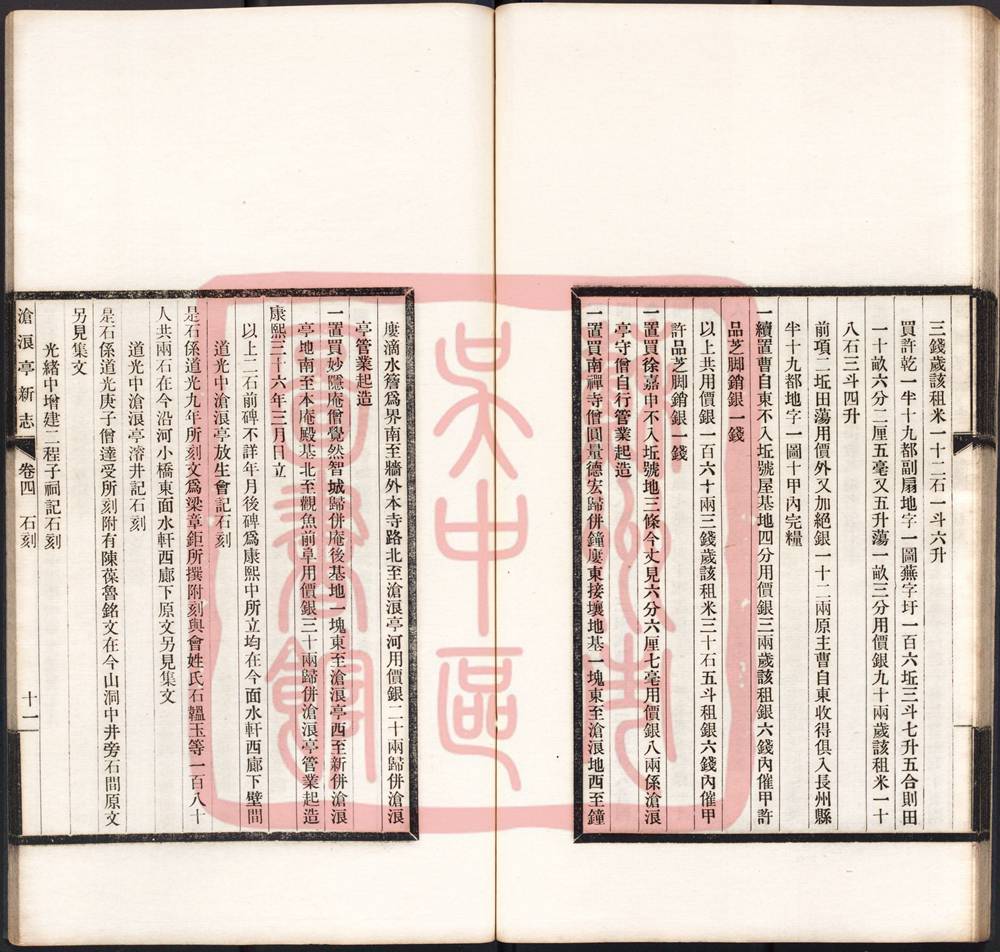 三錢歲該租米一十二石一斗六升
買許乾一半十九都副扇地字一圖蕪字圩一百六坵三斗七升五合則田
一十畝六分二厘五毫又五升蕩一畝三分用價銀九十兩歲該租米一十
八石三斗四升
前項二坵田蕩用價外又加絕銀一十二兩原主曹自東收得俱入長州縣
半十九都地字一圖十甲內完糧
一續置曹自東不入坵號屋基地四分用價銀三兩歲該租銀六錢內催甲許
品芝脚銷銀一錢
以上共用價銀一百六十兩三錢歲該租米三十石五斗租銀六錢內催甲
許品芝脚銷銀一錢
一置買徐嘉申不入坵號地三條今丈見六分六厘七毫用價銀八兩係滄浪
亭守僧自行管業起造
一置買南禪寺僧圓量德宏歸併鐘廔東接壤地基一塊東至滄浪地西至鐘
廔滴水簷爲界南至牆外本寺路北至滄浪亭河用價銀二十兩歸併滄浪
亭管業起造
一置買妙隱庵僧覺然智城歸併庵後基地一塊東至滄浪亭西至新併滄浪
亭地南至本庵殿基北至觀魚前阜用價銀三十兩歸併滄浪亭管業起造
康熙三十六年三月日立
以上二石前碑不詳年月後碑爲康熙中所立均在今面水軒西廊下壁間
道光中滄浪亭放生會記石刻
是石係道光九年所刻文爲梁章鉅所撰附刻與會姓氏石韞玉等一百八十
人共兩石在今沿河小橋東面水軒西廊下原文另見集文
道光中滄浪亭濬井記石刻
是石係道光庚子僧達受所刻附有陳葆魯銘文在今山洞中井旁石間原文
另見集文
光緒中增建二程子祠記石刻
滄浪亭新志
卷四
石刻
十一
吳中區